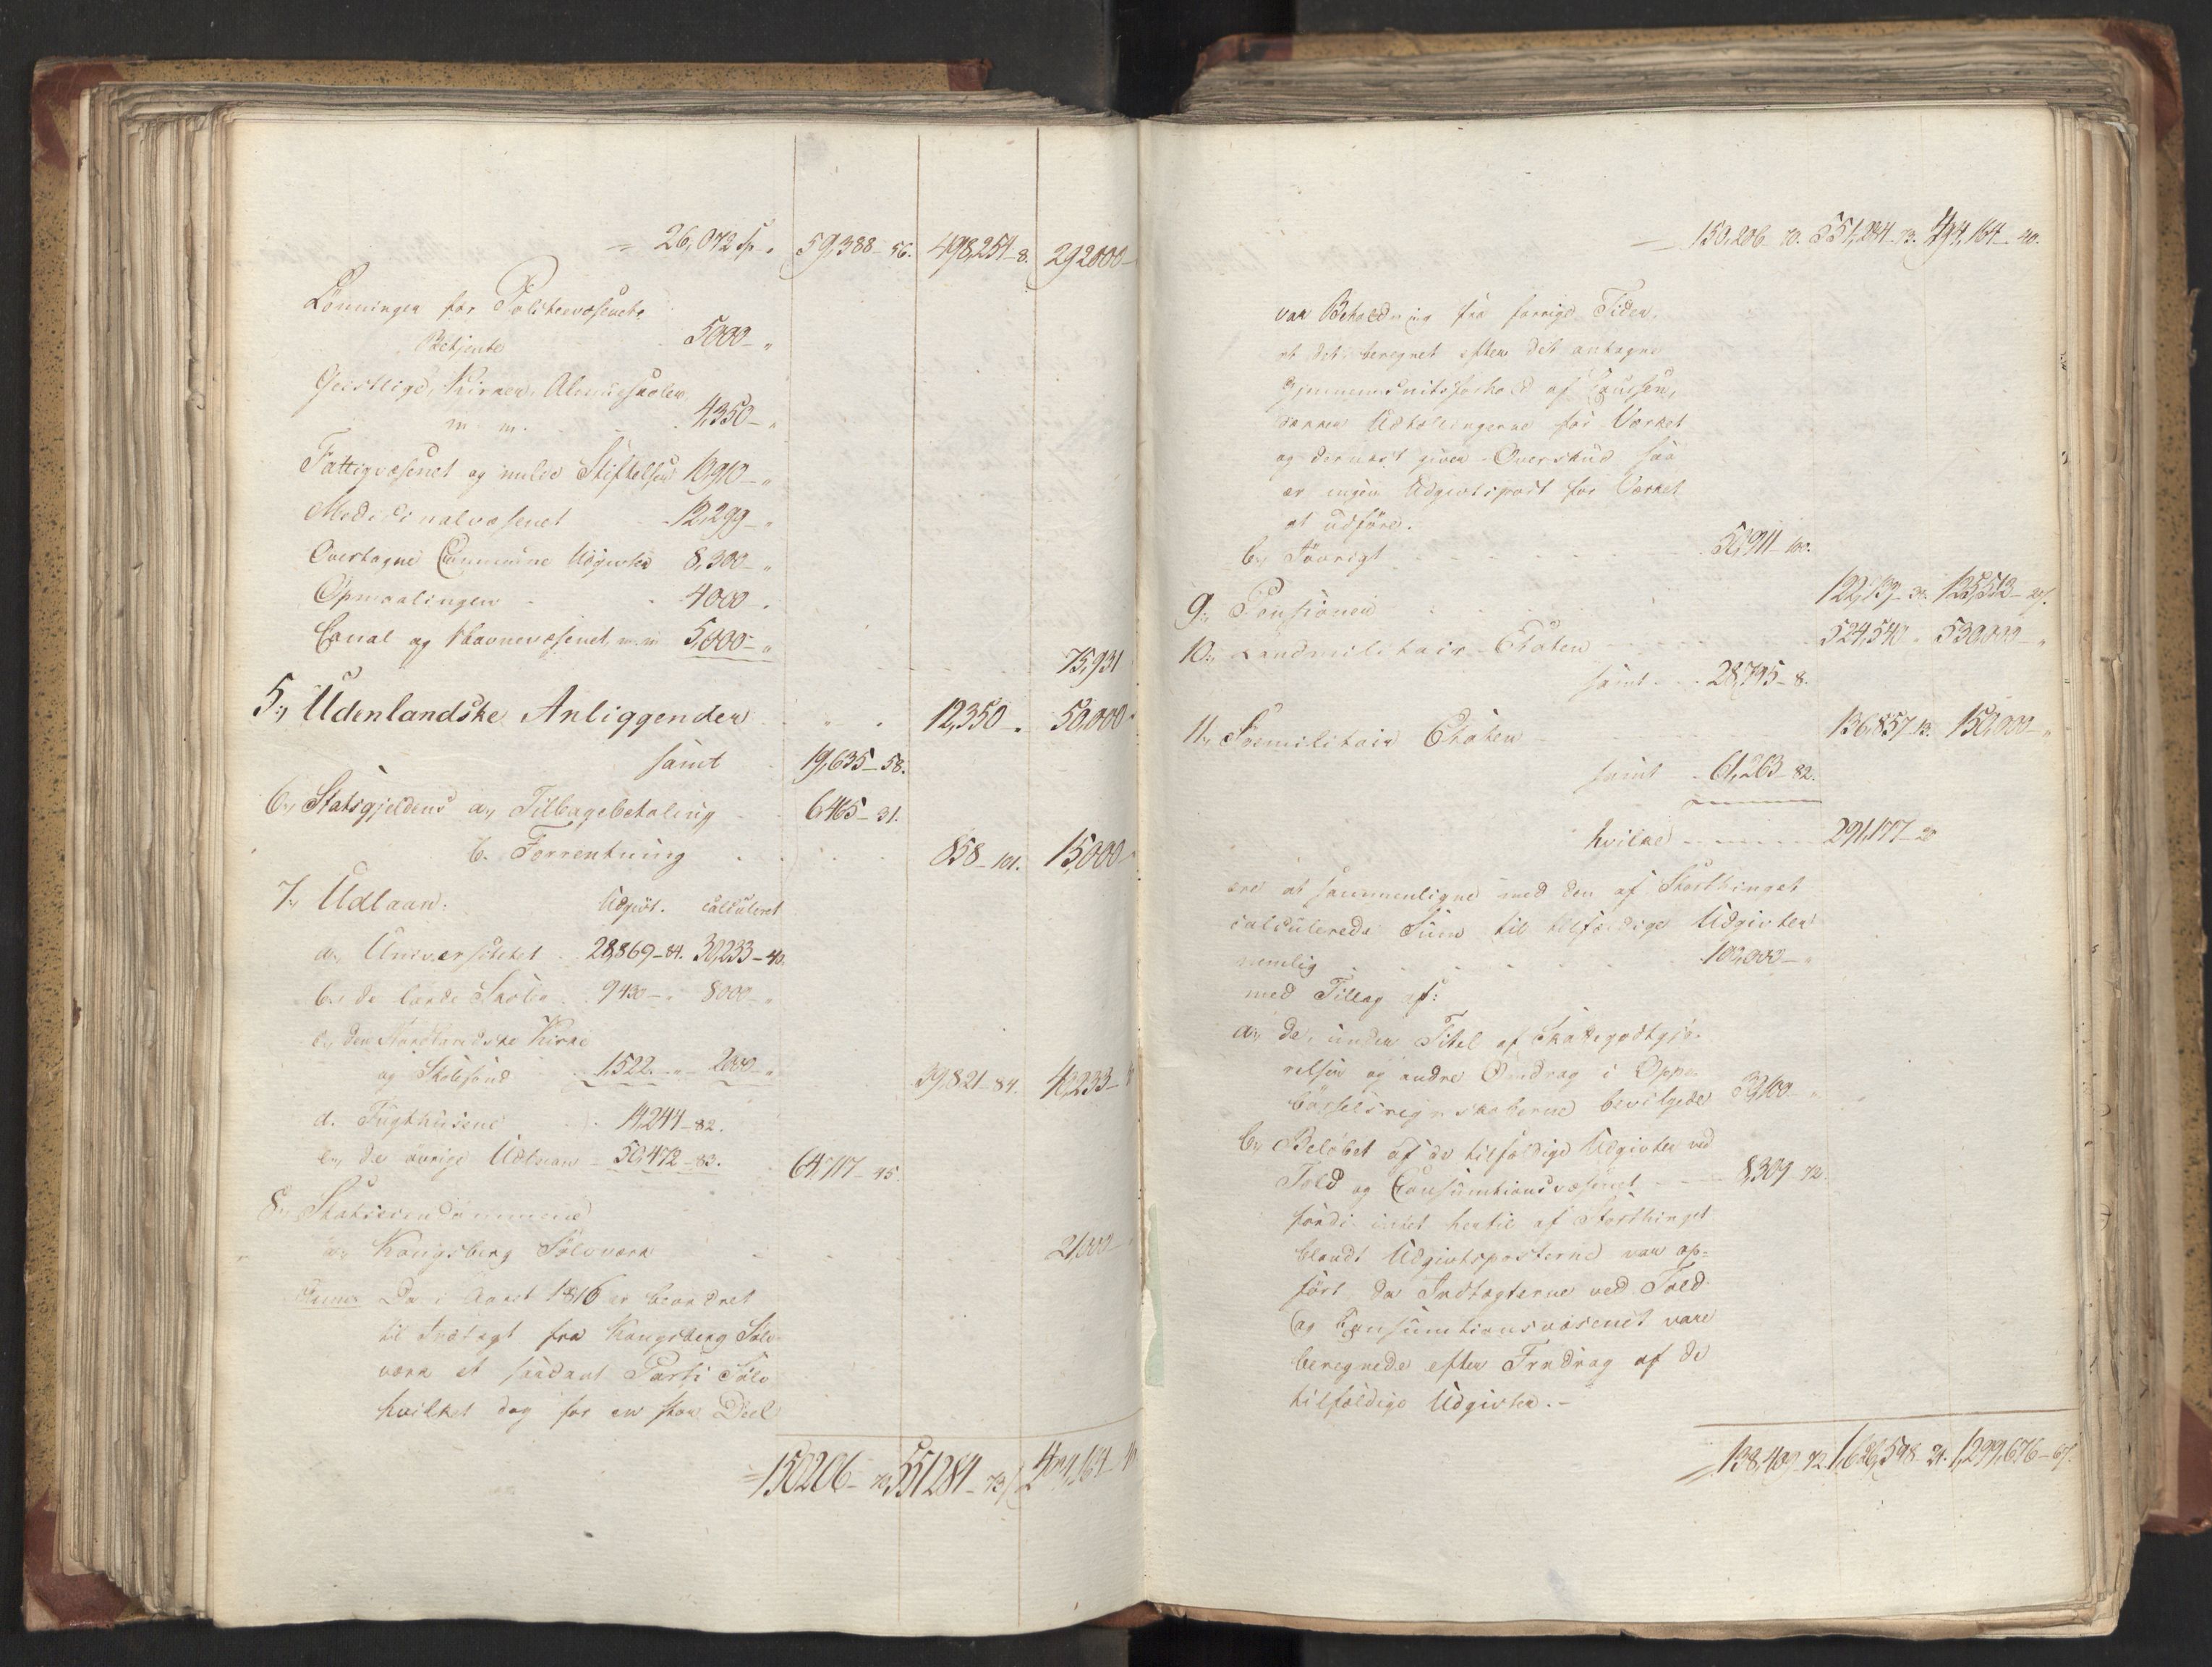 = 26,073 Sp. „ 59,388 - 56. 498,254 - 8. 292000 -
Lønninger for Politievæsenets
Betjente 5000 - „
Geistlige, Kirker, Almueskoler,
m. m. 4,350 - „
Fattigvæsenet og milde Stiftelser 10,910 - „
Medicinalvæsenet - 12,299 - „
Overtagne Commune Udgivter 8,300 - „
Opmaalingen - 4000 - „
Canal og Havnevæsenet m.m 5,000 - „
75,931
5., Udenlandske Anliggender „ 12,350 - „ 50,000
samt 19,635 - 58.
6., Statsgjeldens a., Tilbagebetaling 6,465 - 31.
b. Forrentning 858 - 101. 15,000 -
7., Udlaan: Udgivt. calculeret
a., Universitetet 28,869 - 84. 30,233 - 40.
b., de lærde Skoler 9430 - „ 8000 - „
c., den Nordlandske Kirke
og Skolefond 1,522 - „ 2000 - „ 39,821 - 84. 40,233 -
d. Tugthusene 14,244 - 82.
e., de øvrige Udlaan 50,472 - 83. 64,717 - 45.
8., Statseiendommene
a., Kongsberg Sølvværk 21,000 -
Da i Aaret 1816 er beordret
til Indtægt fra Kongsberg Sølv-
værk et saadant Parti Sølv
hvilket dog for en stor Deel
= 150206 - 70. 551284 - 73. 494,164 - 40
= 150,206 - 70. 551,284 - 73. 494,164 - 40.
var Beholdning fra forrige Tider,
at det beregnet efter det antagne
Gjennemsnitsforhold af Coursen,
dækker Udtællingerne for Værket
og dernæst giver Overskud saa
er ingen Udgivtspost for Værket
at udføre.
b., Iøvrigt 50,911 - 100.
9., Pensioner 122,139 - 125,512 -
10., Landmilitair Etaten 524,540 - „ 530,000 - „
samt 28,795 - 8.
11., Søemilitair Etaten 136,857 - 13. 150,000 - „
samt 61,263 - 82.
hvilke 291,177 - 20
ere at sammenligne med den af Storthinget
calculerede Sum til tilfældige Udgivter
nemlig 100,000 - „
med Tillæg af:
a., de, under Titel af Skattegodtgjø-
relser og andre Ændrag i Oppe-
børselsregnskaberne bevilgede 30,100 - „
b., Beløbet af de tilfældige Udgivter ved
Told og Consumtionsvæsenet 8,309 - 72.
fordi intet hertil af Storthinget
blandt Udgivtsposterne var op-
ført, da Indtægterne ved Told-
og Consumtionsvæsenet vare
beregnede efter Fradrag af de
tilfældige Udgivter. -
= 138,409 - 72. 1,626,598 - 24. 1,299,676 - 67.